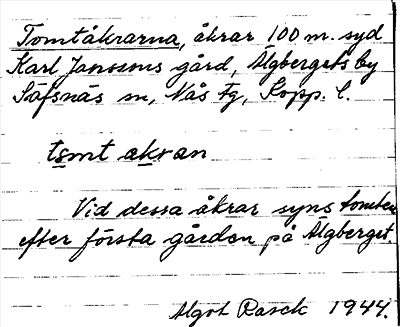 Tomtåkrarna, åkrar 100 m. syd
Karl Janssons gård, Älgbergets by
Säfsnäs sn, Nås tg, Kopp. l.
tomt akran
Vid dessa åkrar syns tomten
efter första gården på Älgberget.
Algot Rasck 1944.